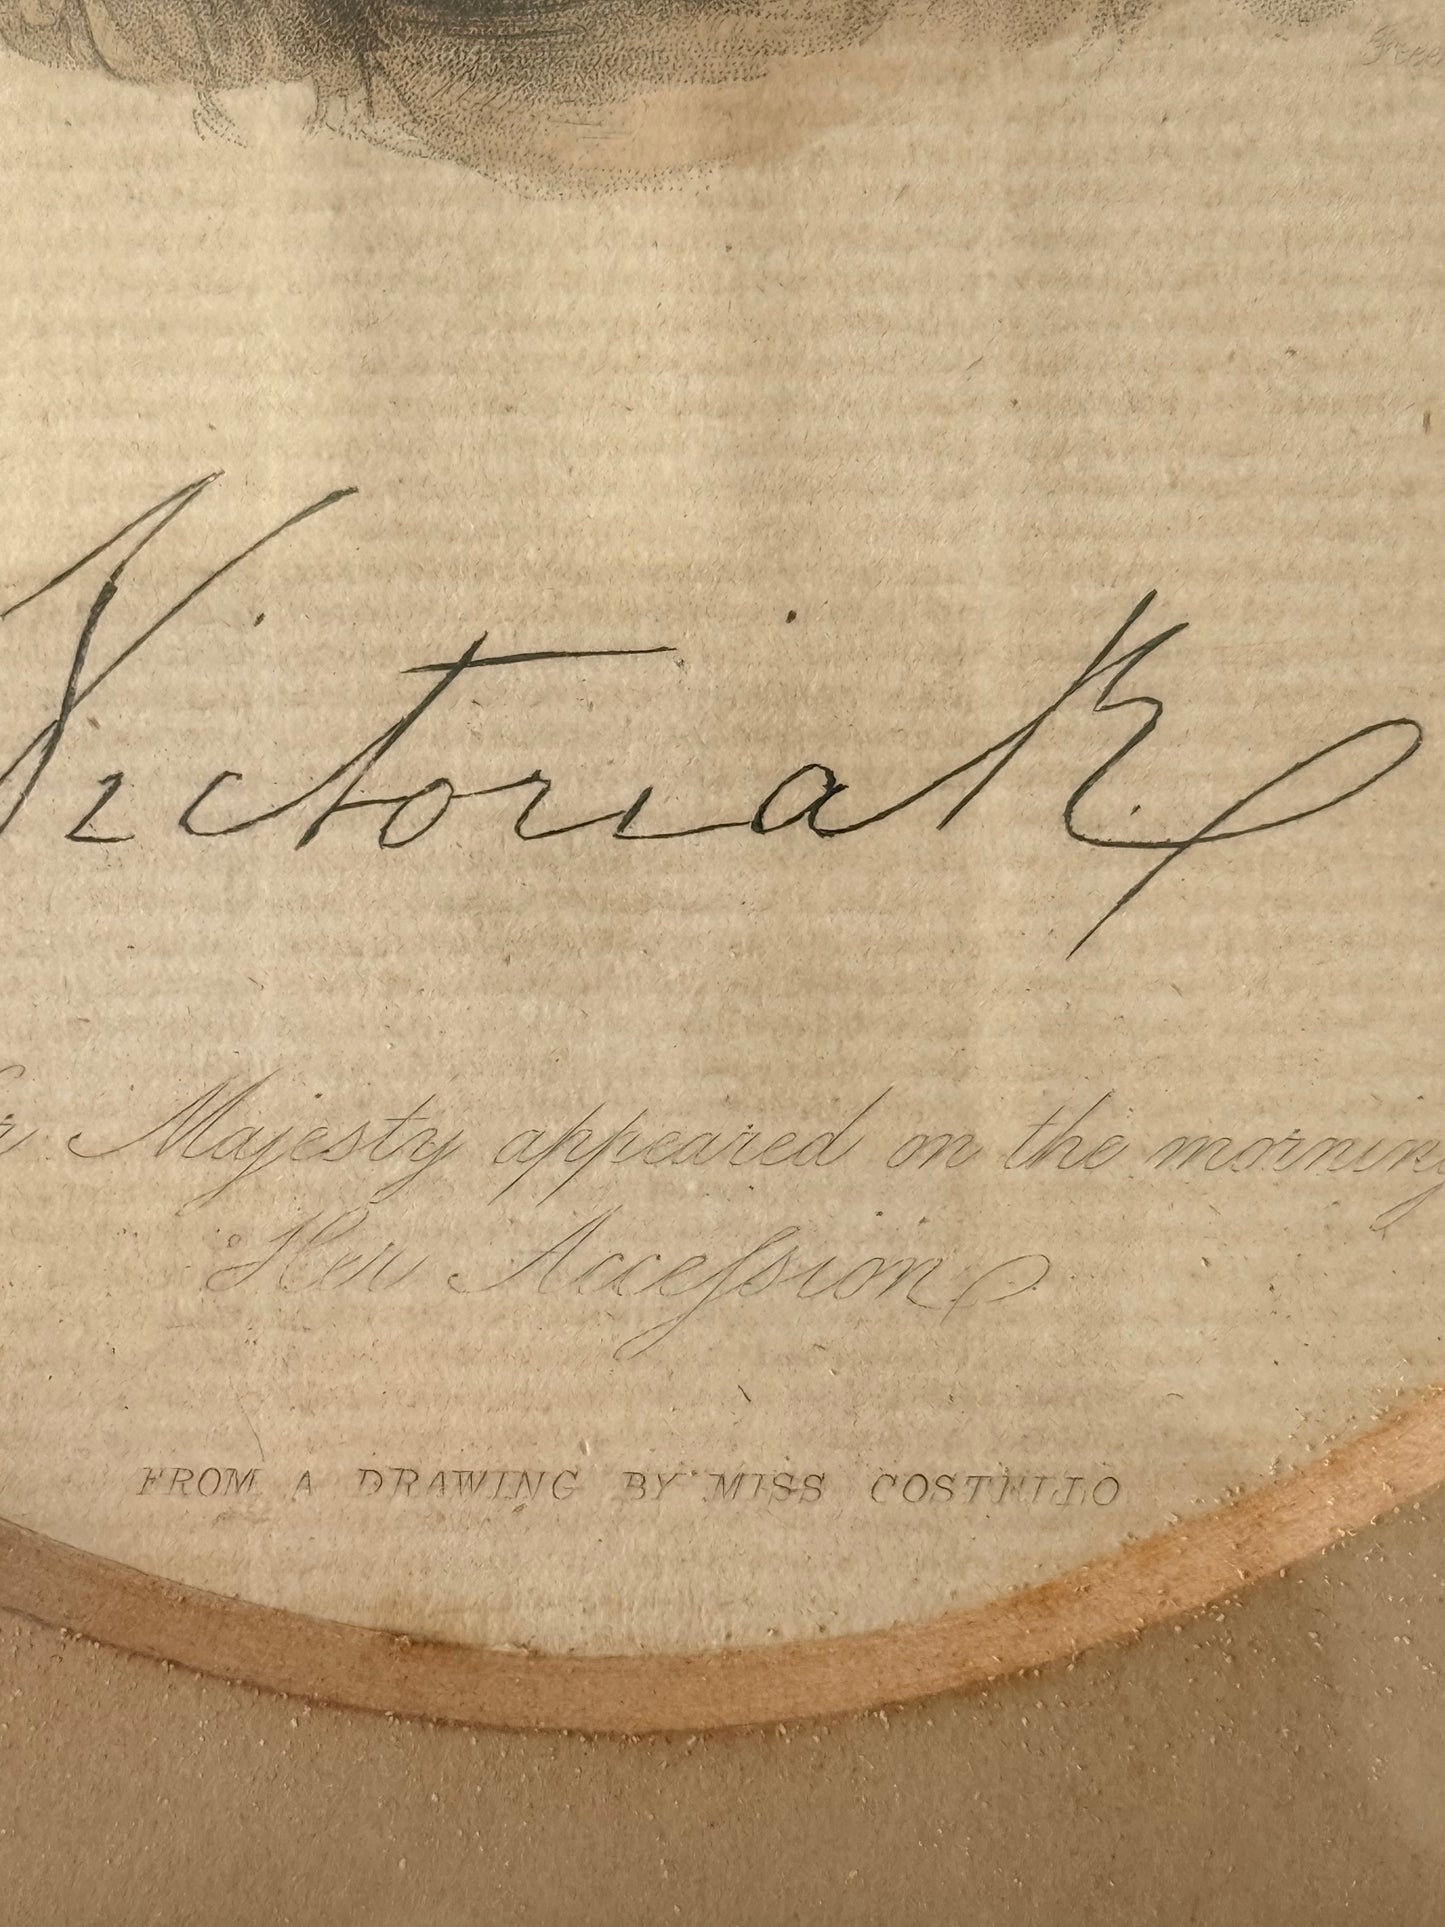 Victoria R
Majesty appeared on the morning
Her Acceſsion
FROM A DRAWING BY MISS COSTELLO